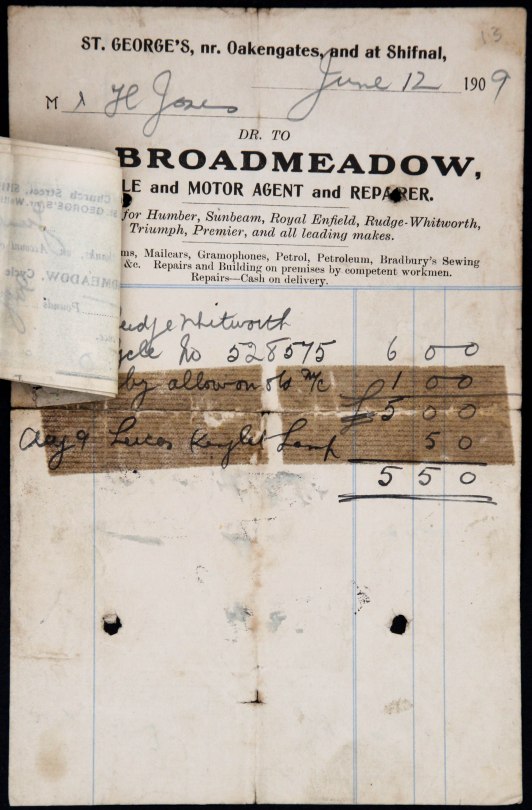 13
ST. GEORGE'S, nr. Oakengates, and at Shifnal,
June 12 1909
M H Jones
DR. TO
BROADMEADOW,
LE and MOTOR AGENT and REPAIRER.
for Humber, Sunbeam, Royal Enfield, Rudge-Whitworth,
Triumph, Premier, and all leading makes.
ms, Mailcars, Gramophones, Petrol, Petroleum, Bradbury's Sewing
&c. Repairs and Building on premises by competent workmen.
Repairs—Cash on delivery.
Rudge Whitworth
ycle No 528575 6 0 0
by allow on old M/c 1 0 0
£5 0 0
Aug 9 Lucas Lamp 5 0
5 5 0
Church Street,
ST. GEORGE'S,
DMEADOW,
Cycle
Pounds